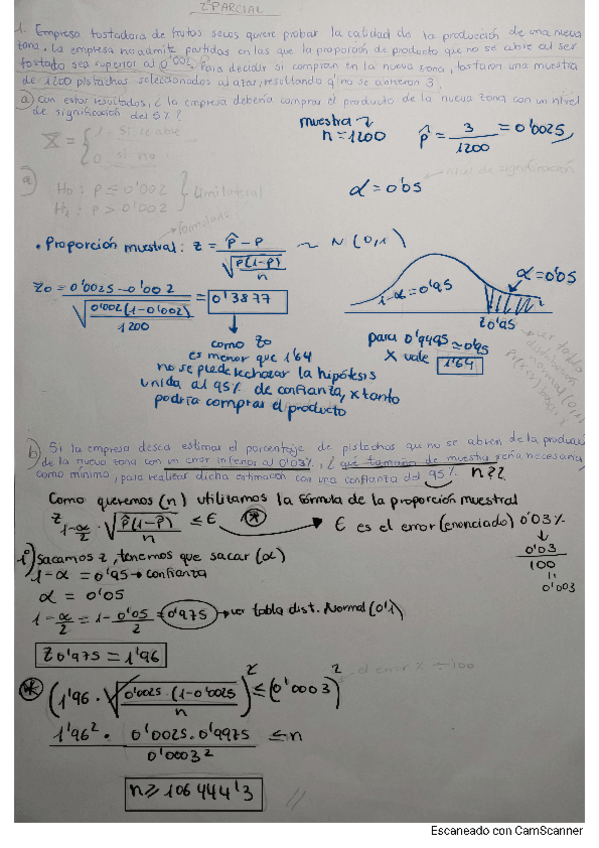 2º PARCIAL
1. Empresa tostadora de frutos secos quiere probar la calidad de la producción de una nueva
zona. La empresa no admite partidas en las que la proporción de producto que no se abre al ser
tostado sea superior al 0'002. Para decidir si compran en la nueva zona, tostaron una muestra
de 1200 pistachos seleccionados al azar, resultando q' no se abrieron 3.
a) Con estos resultados, ¿la empresa debería comprar el producto de la nueva zona con un nivel
de significación del 5%?
muestra
n = 1200
p̂ = 3/1200 = 0'0025
X = { 1 - Si se abre
0 si no
nivel de significación
a)
H₀: p ≤ 0'002
H₁: p > 0'002 } Unilateral
α = 0'05
formulario
• Proporción muestral: z = (p̂ - p) / √(p(1-p)/n) ~ N(0,1)
z₀ = (0'0025 - 0'002) / √(0'002(1-0'002)/1200) = 0'3877
1-α = 0'95
α = 0'05
z₀'₉₅
como z₀
es menor que 1'64
no se puede rechazar la hipótesis
unida al 95% de confianza, x tanto
podría comprar el producto
para 0'9495 ≃ 0'95
x vale 1'64
ver tabla
distribución
normal (0,1)
b) Si la empresa desea estimar el porcentaje de pistachos que no se abren de la producción
de la nueva zona con un error inferior al 0'03%, ¿qué tamaño de muestra sería necesario,
como mínimo, para realizar dicha estimación con una confianza del 95%? n≥?
Como queremos (n) utilizamos la fórmula de la proporción muestral
z₁₋α/₂ · √(p̂(1-p̂)/n) ≤ ε (*) → ε es el error (enunciado) 0'03%
0'03/100
=
0'003
i) Sacamos z, tenemos que sacar (α)
1-α = 0'95 → confianza
α = 0'05
1-α/2 = 1-0'05/2 = 0'975 → ver tabla dist. Normal (0,1)
z₀'₉₇₅ = 1'96
el error % ÷ 100
(*) (1'96 · √(0'0025 · (1-0'0025)/n))² ≤ (0'0003)²
1'96² · 0'0025 · 0'9975 / 0'0003² ≤ n
n ≥ 106444'3
Escaneado con CamScanner